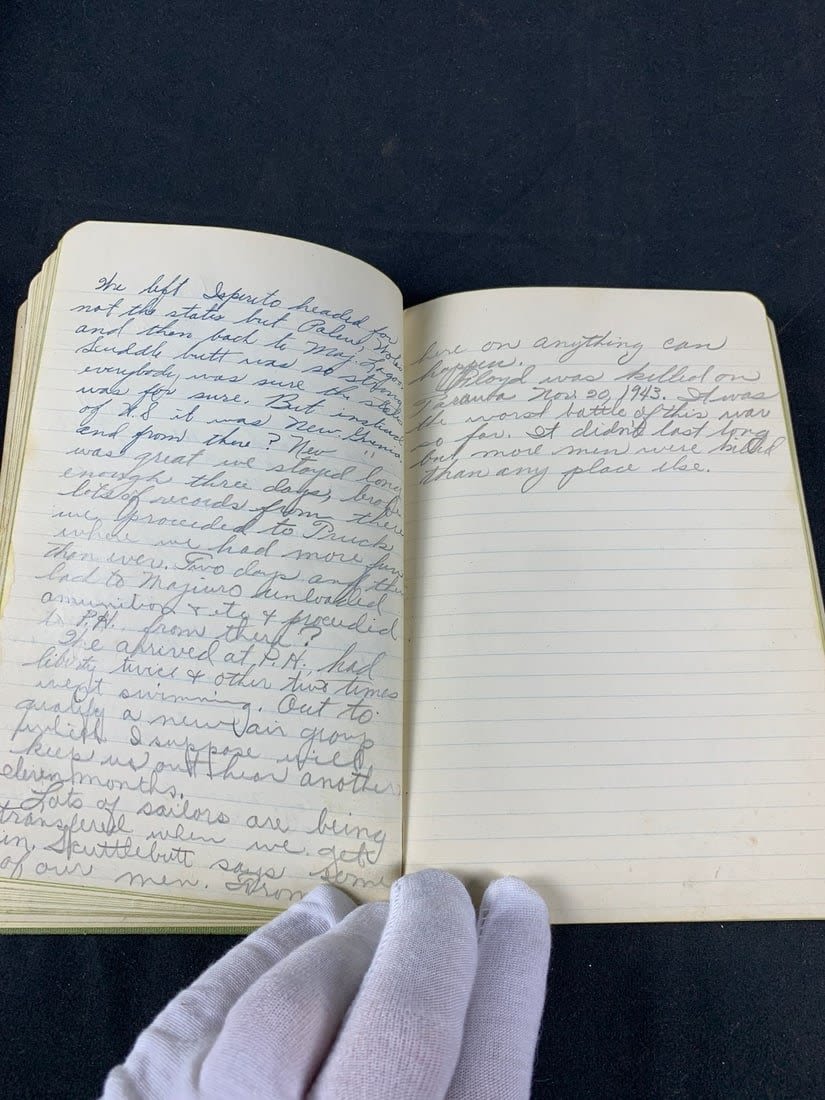 We left Isperito headed for
not the states but Palau, Woleai
and then back to Maj. Lagoon
Scuddle butt was so strong
everybody was sure the states
was for sure. But instead
of U.S it was New Guinea
and from there? New "
was great we stayed long
enough three days, broke
lots of records from there
we proceeded to Truck
where we had more fun
than ever. Two days and then
back to Majiuro unloaded
amunition & etc & proceeded
to P.H. from there?
We arrived at P.H. had
liberty twice & other two times
went swimming. Out to
qualify a new air group
which I suppose will
keep us out hear another
eleven months.
Lots of sailors are being
transfered when we get
in. Skuttlebutt says some
of our men. From
here on anything can
happen.
Floyd was killed on
Tarawa Nov. 20, 1943. It was
the worst battle of this war
so far. It didnt last long
but more men were killed
than any place else.